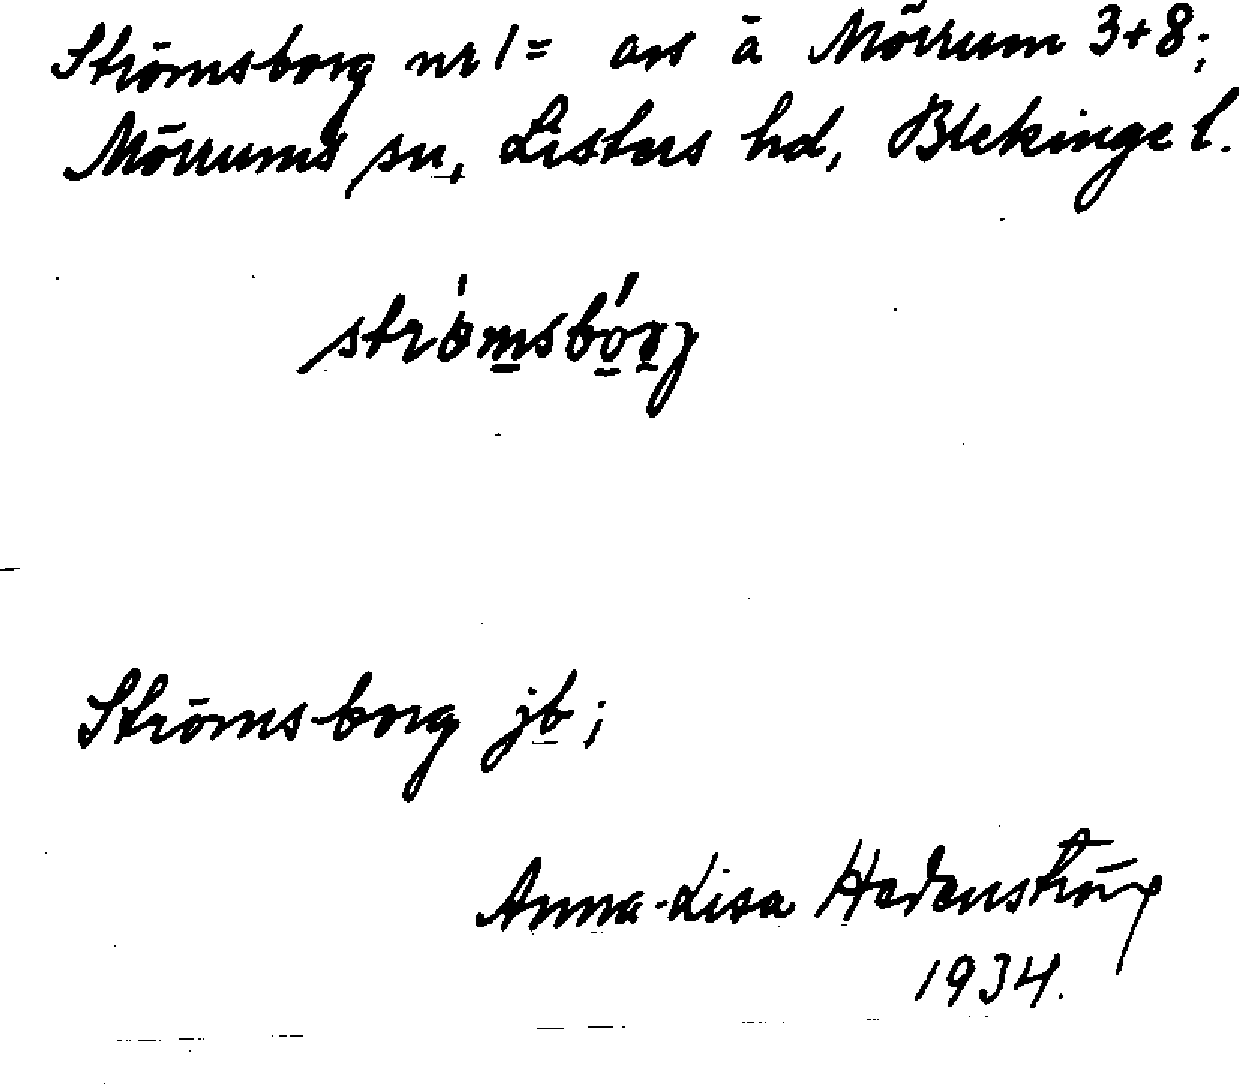 Strömsborg nr 1 = avs å Mörrum 3+8;
Mörrums sn, Listers hd, Blekinge l.
Strömsborg jb;
Anna-Lisa Hedenström
1934.